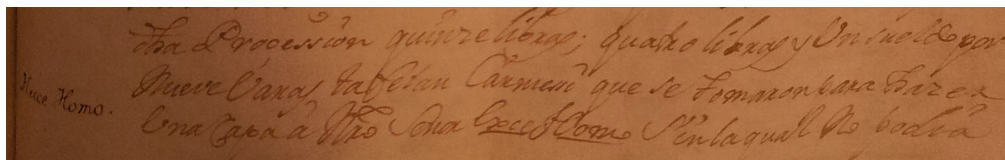 dha Procession quinze libras; quatro libras y Un sueldo por
Nueve Varas tafetan Carmesi que se tomaron para hazer
Hecce Homo.
Una Capa à Nro Señor Ecce Homo Sin la qual No podia